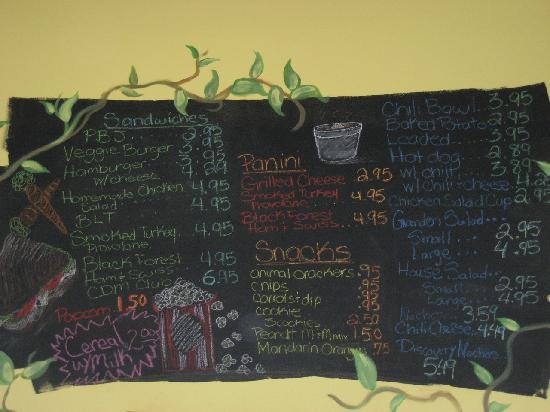 Sandwiches
PBJ 2.95
Veggie Burger 3.95
Hamburger
w/ cheese
Homemade Chicken 4.95
Salad
BLT 4.95
Smoked Turkey 4.95
Provolone
Black Forest 4.95
Ham & Swiss
CDM Club 6.95
Popcorn 1.50
Cereal
w/ milk 2.00
Panini
Grilled Cheese 2.95
Smoked Turkey
Provolone 4.95
Black Forest
Ham & Swiss 4.95
Snacks
animal crackers .95
chips .95
carrots & dip .95
cookie .95
3 cookies 2.50
Peanut M&M mix 1.50
Mandarin Oranges .75
Chili Bowl 3.95
Baked Potato 2.95
Loaded 3.95
Hot dog 2.89
w/ chili
w/ chili & cheese
Chicken Salad Cup
Garden Salad
Small 2.95
Large 4.95
House Salad
Small 2.95
Large 4.95
Nachos 3.59
Chili Cheese 4.49
Discovery Nachos
5.49